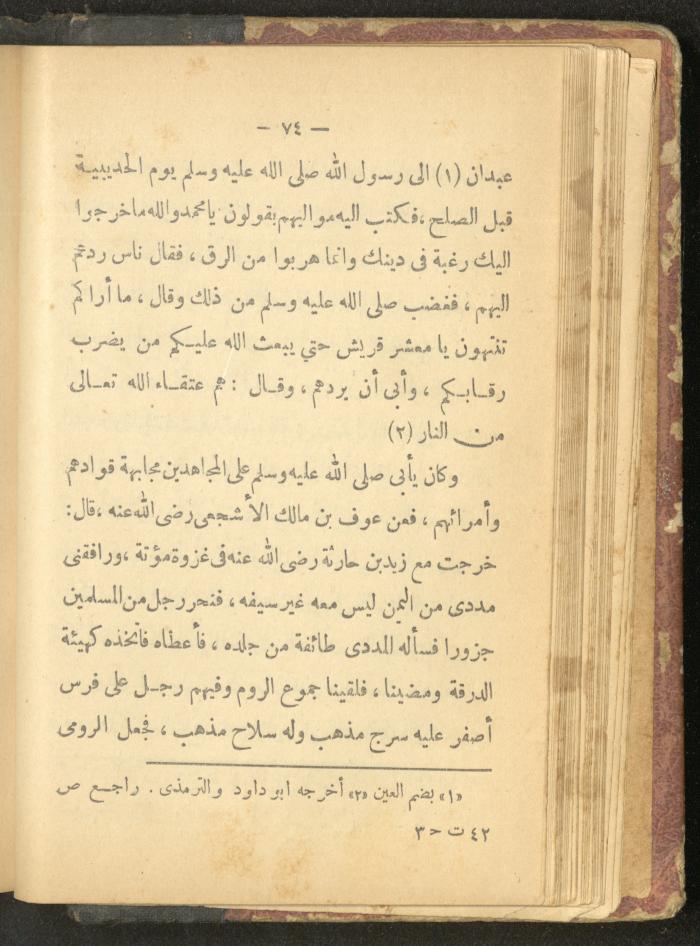 — ٧٤ —
عبدان (١) الى رسول الله صلى الله عليه وسلم يوم الحديبية
قبل الصلح ، فكتب اليه مواليهم يقولون يا محمد والله ماخرجوا
اليك رغبة فى دينك وانما هربوا من الرق ، فقال ناس ردهم
اليهم ، فغضب صلى الله عليه وسلم من ذلك وقال ، ما أراكم
تنتهون يا معشر قريش حتي يبعث الله عليكم من يضرب
رقابكم ، وأبى أن يردهم ، وقال : هم عتقاء الله تعالى
من النار (٢)
وكان يأبى صلى الله عليه وسلم على المجاهدين مجابهة قوادهم
وأمرائهم ، فعن عوف بن مالك الأشجعى رضى الله عنه ، قال :
خرجت مع زيد بن حارثة رضى الله عنه فى غزوة مؤتة ، ورافقنى
مددى من اليمن ليس معه غير سيفه ، فنحر رجل من المسلمين
جزورا فسأله المددى طائفة من جلده ، فأعطاه فاتخذه كهيئة
الدرقة ومضينا ، فلقينا جموع الروم وفيهم رجل على فرس
أصفر عليه سرج مذهب وله سلاح مذهب ، فجعل الرومى
«١» بضم العين «٢» أخرجه ابو داود والترمذى . راجع ص
٤٢ ت ح ٣